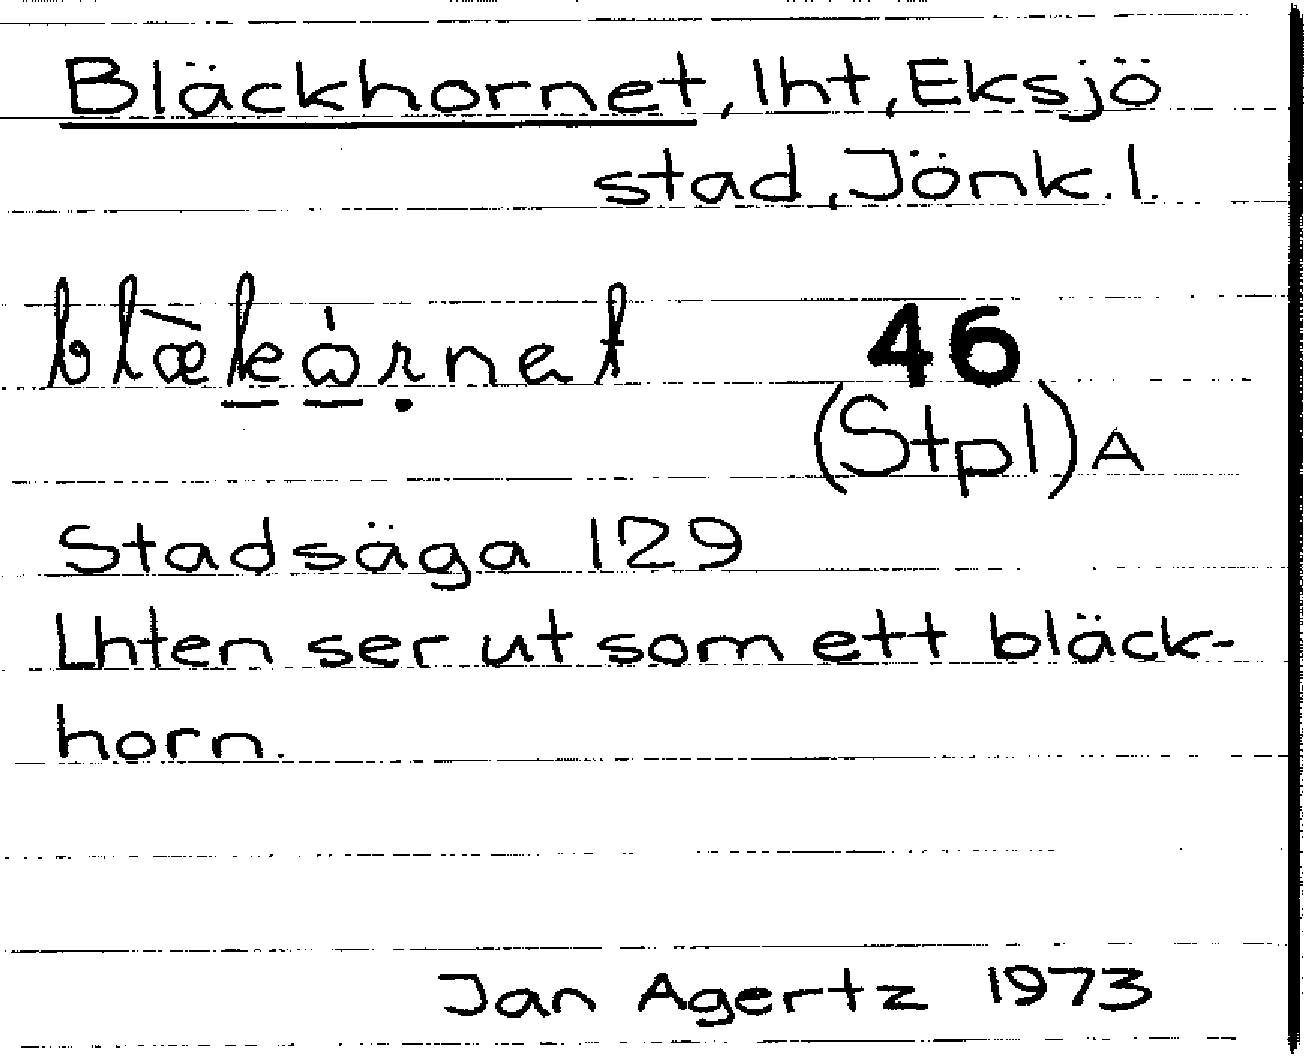 Bläckhornet, lht, Eksjö
stad, Jönk.l.
blæ̀kɷ́rnət 46
(Stpl) A
Stadsäga 129
Lhten ser ut som ett bläck-
horn.
Jan Agertz 1973